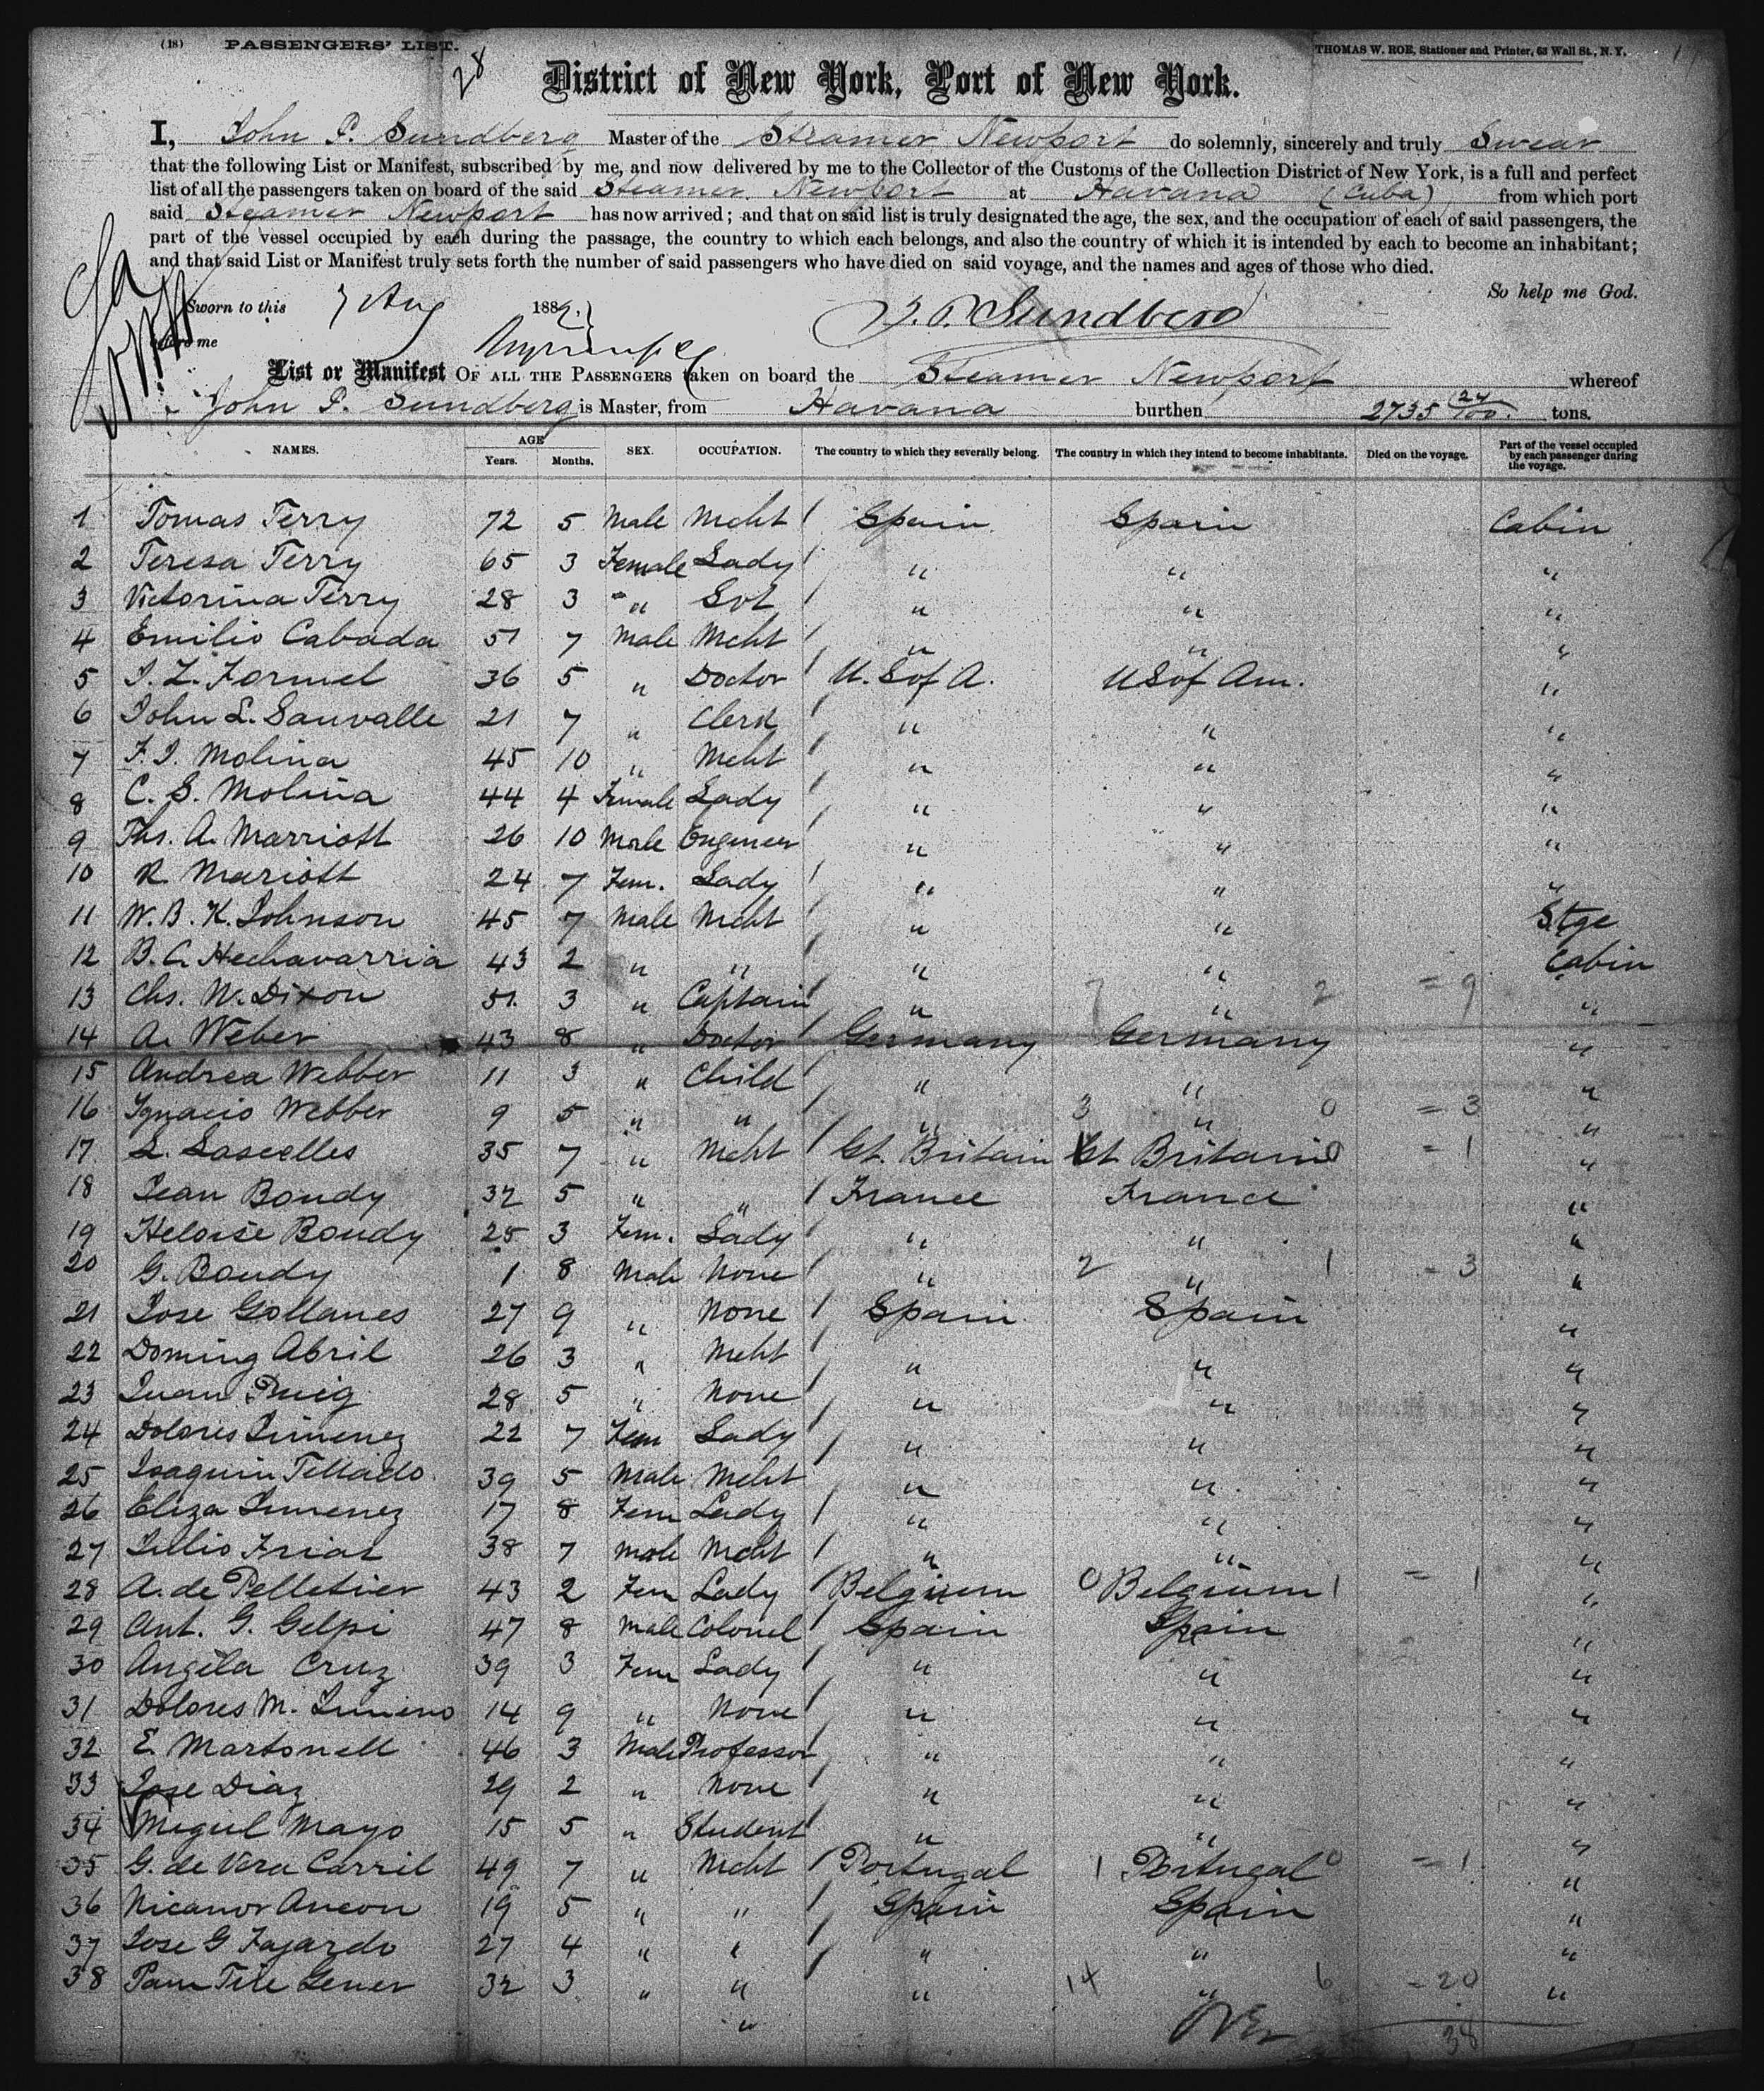 (18) PASSENGERS' LIST.
THOMAS W. ROE, Stationer and Printer, 63 Wall St., N.Y.
28
District of New York, Port of New York.
I, John P. Sundberg Master of the Steamer Newport do solemnly, sincerely and truly Swear
that the following List or Manifest, subscribed by me, and now delivered by me to the Collector of the Customs of the Collection District of New York, is a full and perfect
list of all the passengers taken on board of the said Steamer Newport at Havana (Cuba) from which port
said Steamer Newport has now arrived; and that on said list is truly designated the age, the sex, and the occupation of each of said passengers, the
part of the vessel occupied by each during the passage, the country to which each belongs, and also the country of which it is intended by each to become an inhabitant;
and that said List or Manifest truly sets forth the number of said passengers who have died on said voyage, and the names and ages of those who died.
So help me God.
Sworn to this 7 Aug 1882.
J. P. Sundberg
before me
List or Manifest OF ALL THE PASSENGERS taken on board the Steamer Newport whereof
John P. Sundberg is Master, from Havana burthen 2735 24/100. tons.
NAMES. AGE Years. Months. SEX. OCCUPATION. The country to which they severally belong. The country in which they intend to become inhabitants. Died on the voyage. Part of the vessel occupied by each passenger during the voyage.
1 Tomas Terry 72 5 Male Mcht / Spain Spain Cabin
2 Teresa Terry 65 3 Female Lady / " " "
3 Victorina Terry 28 3 " Svt / " " "
4 Emilio Cabada 51 7 Male Mcht / " " "
5 J. L. Formel 36 5 " Doctor / U. S of A. U S of Am. "
6 John L. Sauvalle 21 7 " Clerk / " " "
7 F. J. Molina 45 10 " Mcht / " " "
8 C. S. Molina 44 4 Female Lady / " " "
9 Ths. A. Marriott 26 10 Male Engineer " " "
10 R Mariott 24 7 Fem. Lady / " " "
11 W. B. K. Johnson 45 7 Male Mcht / " " Stge
12 B. C. Hechavarria 43 2 " " / " " Cabin
13 Chs. W. Dixon 51 3 " Captain / " 7 " 2 = 9 "
14 A. Weber 43 8 " Doctor / Germany Germany "
15 Andrea Webber 11 3 " Child / " " "
16 Ignacio Webber 9 5 " " / " 3 " 0 = 3 "
17 L. Lascelles 35 7 " Mcht / Gt. Britain 1 Gt Britain 0 = 1 "
18 Jean Boudy 32 5 " " / France France "
19 Heloise Boudy 25 3 Fem. Lady / " " "
20 G. Boudy 1 8 Male None / " 2 " 1 = 3 "
21 Jose Gollanes 27 9 " None / Spain Spain "
22 Doming Abril 26 3 " Mcht / " " "
23 Juan Puig 28 5 " None / " " "
24 Dolores Jimenez 22 7 Fem Lady / " " "
25 Joaquin Tellado 39 5 Male Mcht / " " "
26 Eliza Jimenez 17 8 Fem Lady / " " "
27 Julio Frias 38 7 Male Mcht / " " "
28 A. de Pelletier 43 2 Fem Lady / Belgium 0 Belgium 1 = 1 "
29 Ant. G. Gelpi 47 8 Male Colonel / Spain Spain "
30 Angela Cruz 39 3 Fem Lady / " " "
31 Dolores M. Jimeno 14 9 " None / " " "
32 E. Martonell 46 3 Male Professor / " " "
33 Jose Diaz 29 2 " None / " " "
34 Miguel Mayo 15 5 " Student / " " "
35 G. de Vera Carril 49 7 " Mcht / Portugal 1 Portugal 0 = 1 "
36 Nicanor Ancon 19 5 " " / Spain Spain "
37 Jose G Fajardo 27 4 " " / " " "
38 Gener 32 3 " " " 14 " 6 = 20 "
"
Over 38